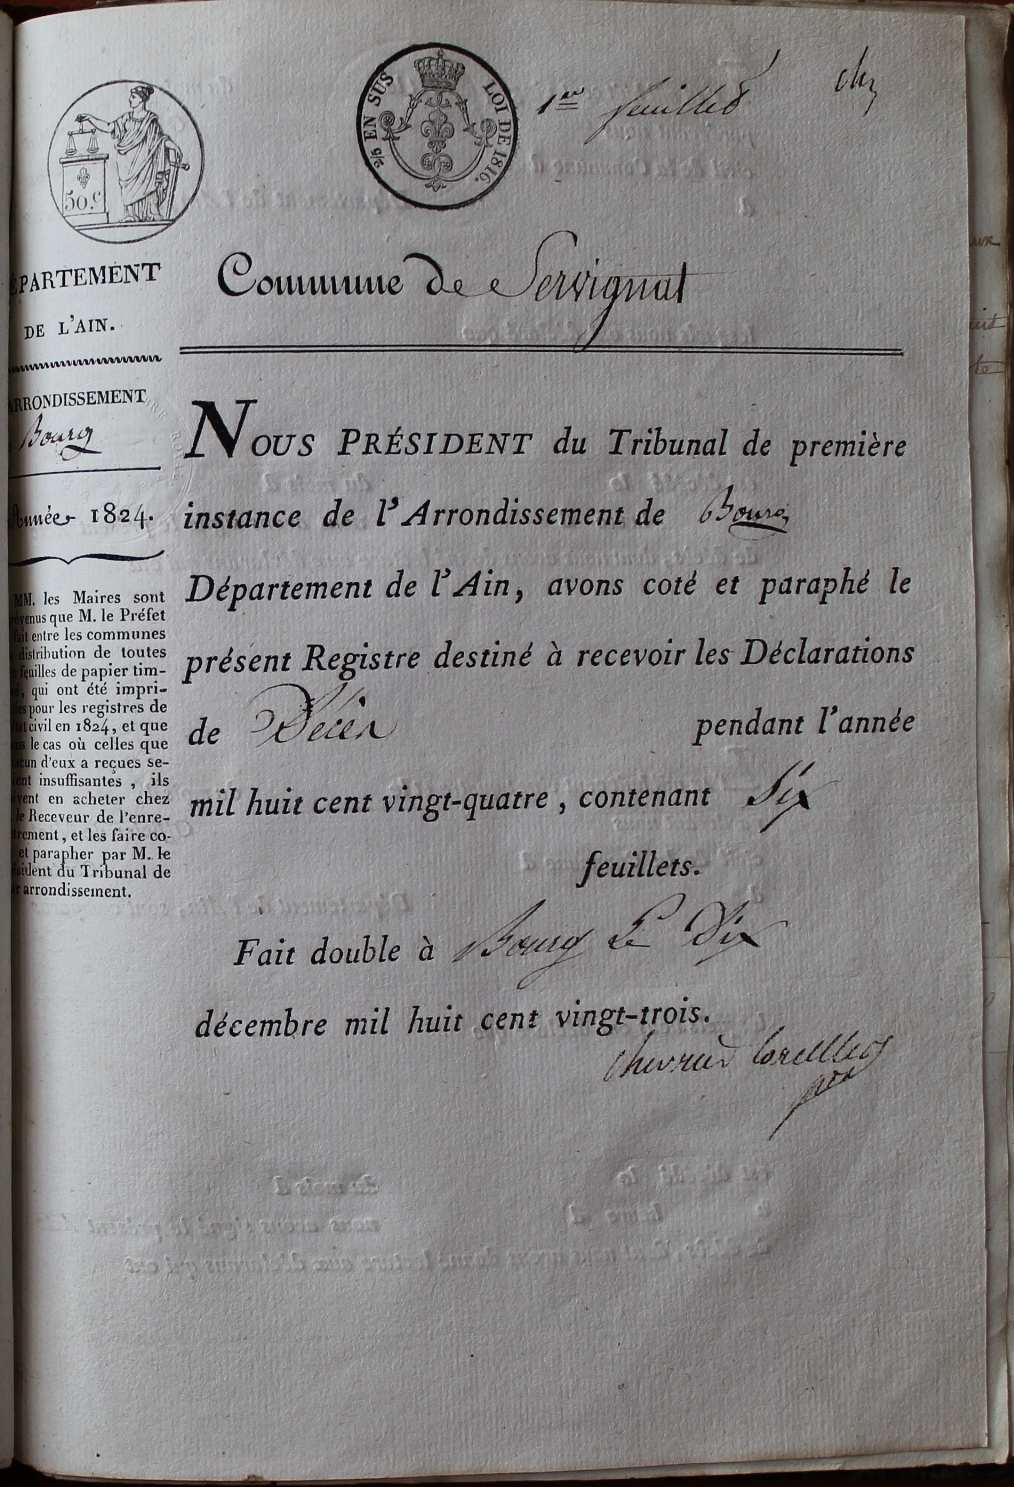 1er feuillet
50.c
2/5 EN SUS LOI DE 1816.
DÉPARTEMENT
DE L'AIN.
ARRONDISSEMENT
Bourg
Année 1824.
MM. les Maires sont
venus que M. le Préfet
fait entre les communes
distribution de toutes
feuilles de papier tim-
qui ont été impri-
pour les registres de
civil en 1824, et que
le cas où celles que
cun d'eux a reçues se-
ent insuffisantes, ils
vent en acheter chez
le Receveur de l'enre-
trement, et les faire co-
et parapher par M. le
sident du Tribunal de
arrondissement.
Commune de Servignat
NOUS PRÉSIDENT du Tribunal de première
instance de l'Arrondissement de Bourg
Département de l'Ain, avons coté et paraphé le
présent Registre destiné à recevoir les Déclarations
de Décès pendant l'année
mil huit cent vingt-quatre, contenant Six
feuillets.
Fait double à Bourg Le Dix
décembre mil huit cent vingt-trois.